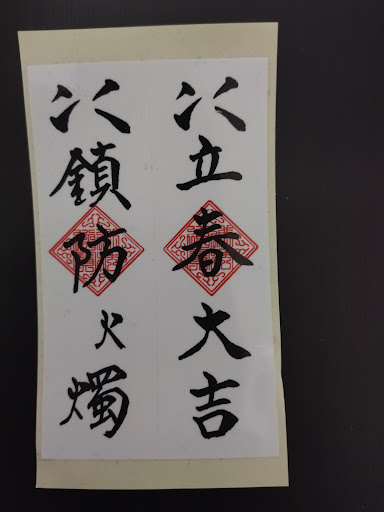 立春大吉
鎮防火燭